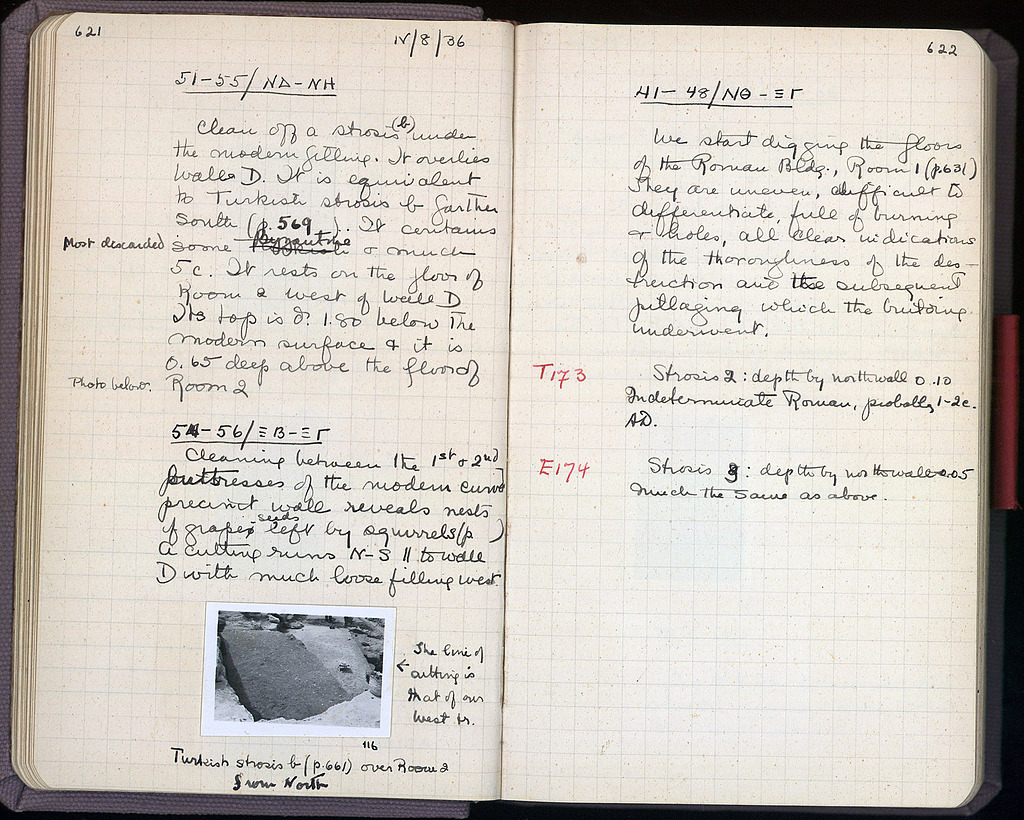 621
IV/8/36
51–55/ΝΔ–ΝΗ
Clean off a strosis (b) under
the modern filling. It overlies
wall D. It is equivalent
to Turkish strosis b farther
South (p. 569 ). It contains
Most discarded
some Byzantine & much
5c. It rests on the floor of
Room 2 west of wall D
Its top is 1.80 below the
modern surface & it is
0.65 deep above the floor of
Photo below.
Room 2
54–56/ΞΒ–ΞΓ
Cleaning between the 1st & 2nd
buttresses of the modern curved
precinct wall reveals nests
of grape seeds left by squirrels (p )
A cutting runs N–S || to wall
D with much loose filling west.
← The line of
cutting is
that of our
West tr.
116
Turkish strosis b (p.661) over Room 2
from North
622
41–48/ΝΘ–ΞΓ
We start digging the floors
of the Roman Bldg., Room 1 (p.631)
They are uneven, difficult to
differentiate, full of burning
& holes, all clear indications
of the thoroughness of the des-
truction and the subsequent
pillaging which the building
underwent.
T173
Strosis 2: depth by north wall 0.10
Indeterminate Roman, probably 1–2c.
AD.
E174
Strosis 3: depth by north wall 0.05
much the same as above.